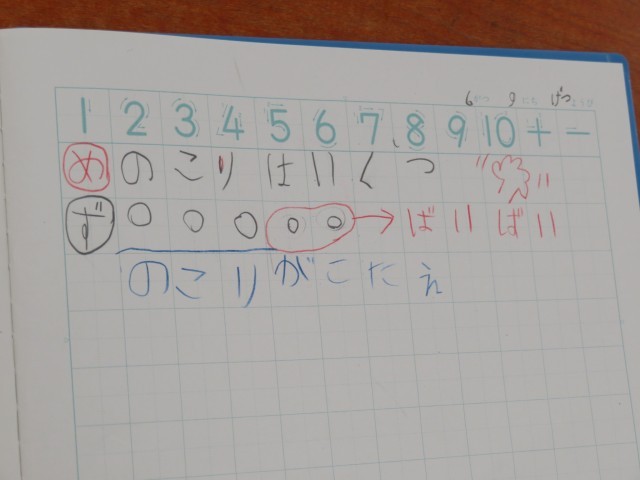 6がつ 9にち げつようび
1 2 3 4 5 6 7 8 9 10 + −
め のこりはいくつ
ず ○ ○ ○ ○ ○ → ばいばい
のこりがこたえ